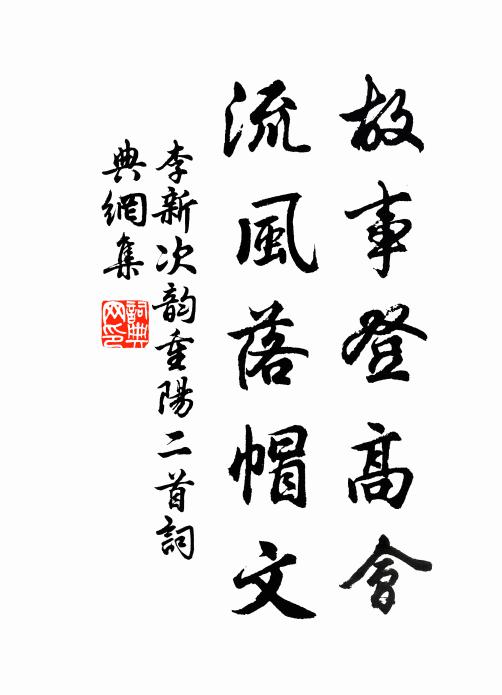 故事登高會
流風落帽文
李新次韵重陽二首詞
典網集
詞典網印